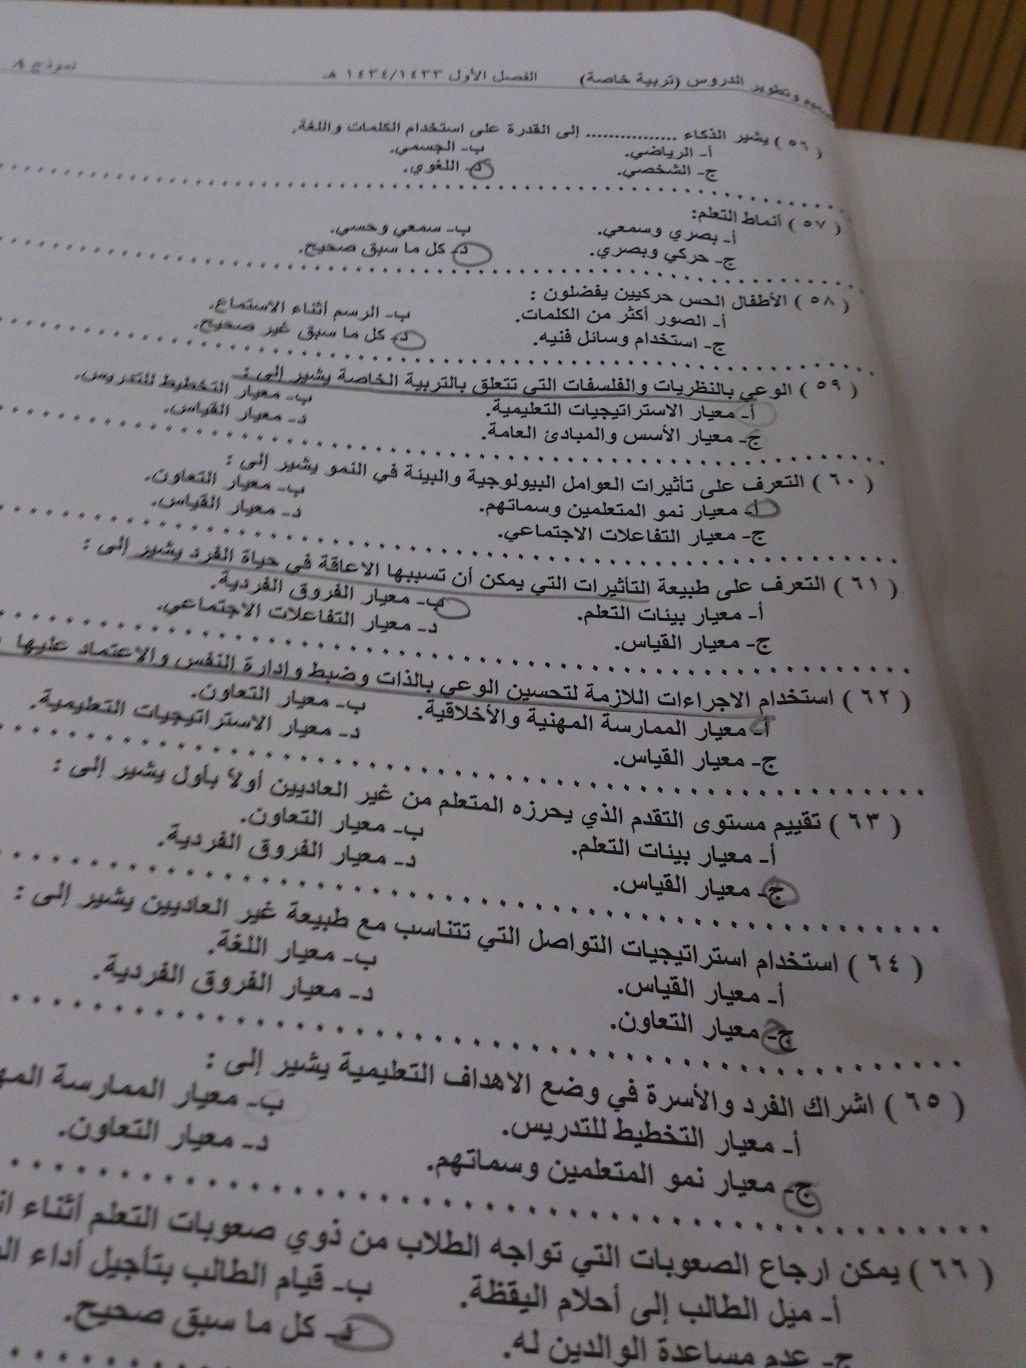 وتطوير الدروس (تربية خاصة) الفصل الأول ١٤٣٤/١٤٣٣ هـ نموذج A
( ٥٦ ) يشير الذكاء ................ إلى القدرة على استخدام الكلمات واللغة.
أ- الرياضي. ب- الجسمي.
ج- الشخصي. د- اللغوي.
( ٥٧ ) أنماط التعلم:
أ- بصري وسمعي. ب- سمعي وحسي.
ج- حركي وبصري. د- كل ما سبق صحيح.
( ٥٨ ) الأطفال الحس حركيين يفضلون :
أ- الصور أكثر من الكلمات. ب- الرسم أثناء الاستماع.
ج- استخدام وسائل فنيه. د- كل ما سبق غير صحيح.
( ٥٩ ) الوعي بالنظريات والفلسفات التي تتعلق بالتربية الخاصة يشير إلى :
أ- معيار الاستراتيجيات التعليمية. ب- معيار التخطيط للتدريس.
ج- معيار الأسس والمبادئ العامة. د- معيار القياس.
( ٦٠ ) التعرف على تأثيرات العوامل البيولوجية والبيئة في النمو يشير إلى :
أ- معيار نمو المتعلمين وسماتهم. ب- معيار التعاون.
ج- معيار التفاعلات الاجتماعي. د- معيار القياس.
( ٦١ ) التعرف على طبيعة التأثيرات التي يمكن أن تسببها الاعاقة في حياة الفرد يشير إلى :
أ- معيار بيئات التعلم. ب- معيار الفروق الفردية.
ج- معيار القياس. د- معيار التفاعلات الاجتماعي.
( ٦٢ ) استخدام الاجراءات اللازمة لتحسين الوعي بالذات وضبط وإدارة النفس والاعتماد عليها
أ- معيار الممارسة المهنية والأخلاقية. ب- معيار التعاون.
ج- معيار القياس. د- معيار الاستراتيجيات التعليمية.
( ٦٣ ) تقييم مستوى التقدم الذي يحرزه المتعلم من غير العاديين أولاً بأول يشير إلى :
أ- معيار بيئات التعلم. ب- معيار التعاون.
ج- معيار القياس. د- معيار الفروق الفردية.
( ٦٤ ) استخدام استراتيجيات التواصل التي تتناسب مع طبيعة غير العاديين يشير إلى :
أ- معيار القياس. ب- معيار اللغة.
ج- معيار التعاون. د- معيار الفروق الفردية.
( ٦٥ ) اشراك الفرد والأسرة في وضع الاهداف التعليمية يشير إلى :
أ- معيار التخطيط للتدريس. ب- معيار الممارسة
ج- معيار نمو المتعلمين وسماتهم. د- معيار التعاون.
( ٦٦ ) يمكن ارجاع الصعوبات التي تواجه الطلاب من ذوي صعوبات التعلم أثناء
أ- ميل الطالب إلى أحلام اليقظة. ب- قيام الطالب بتأجيل أداء
ج- عدم مساعدة الوالدين له. د- كل ما سبق صحيح.